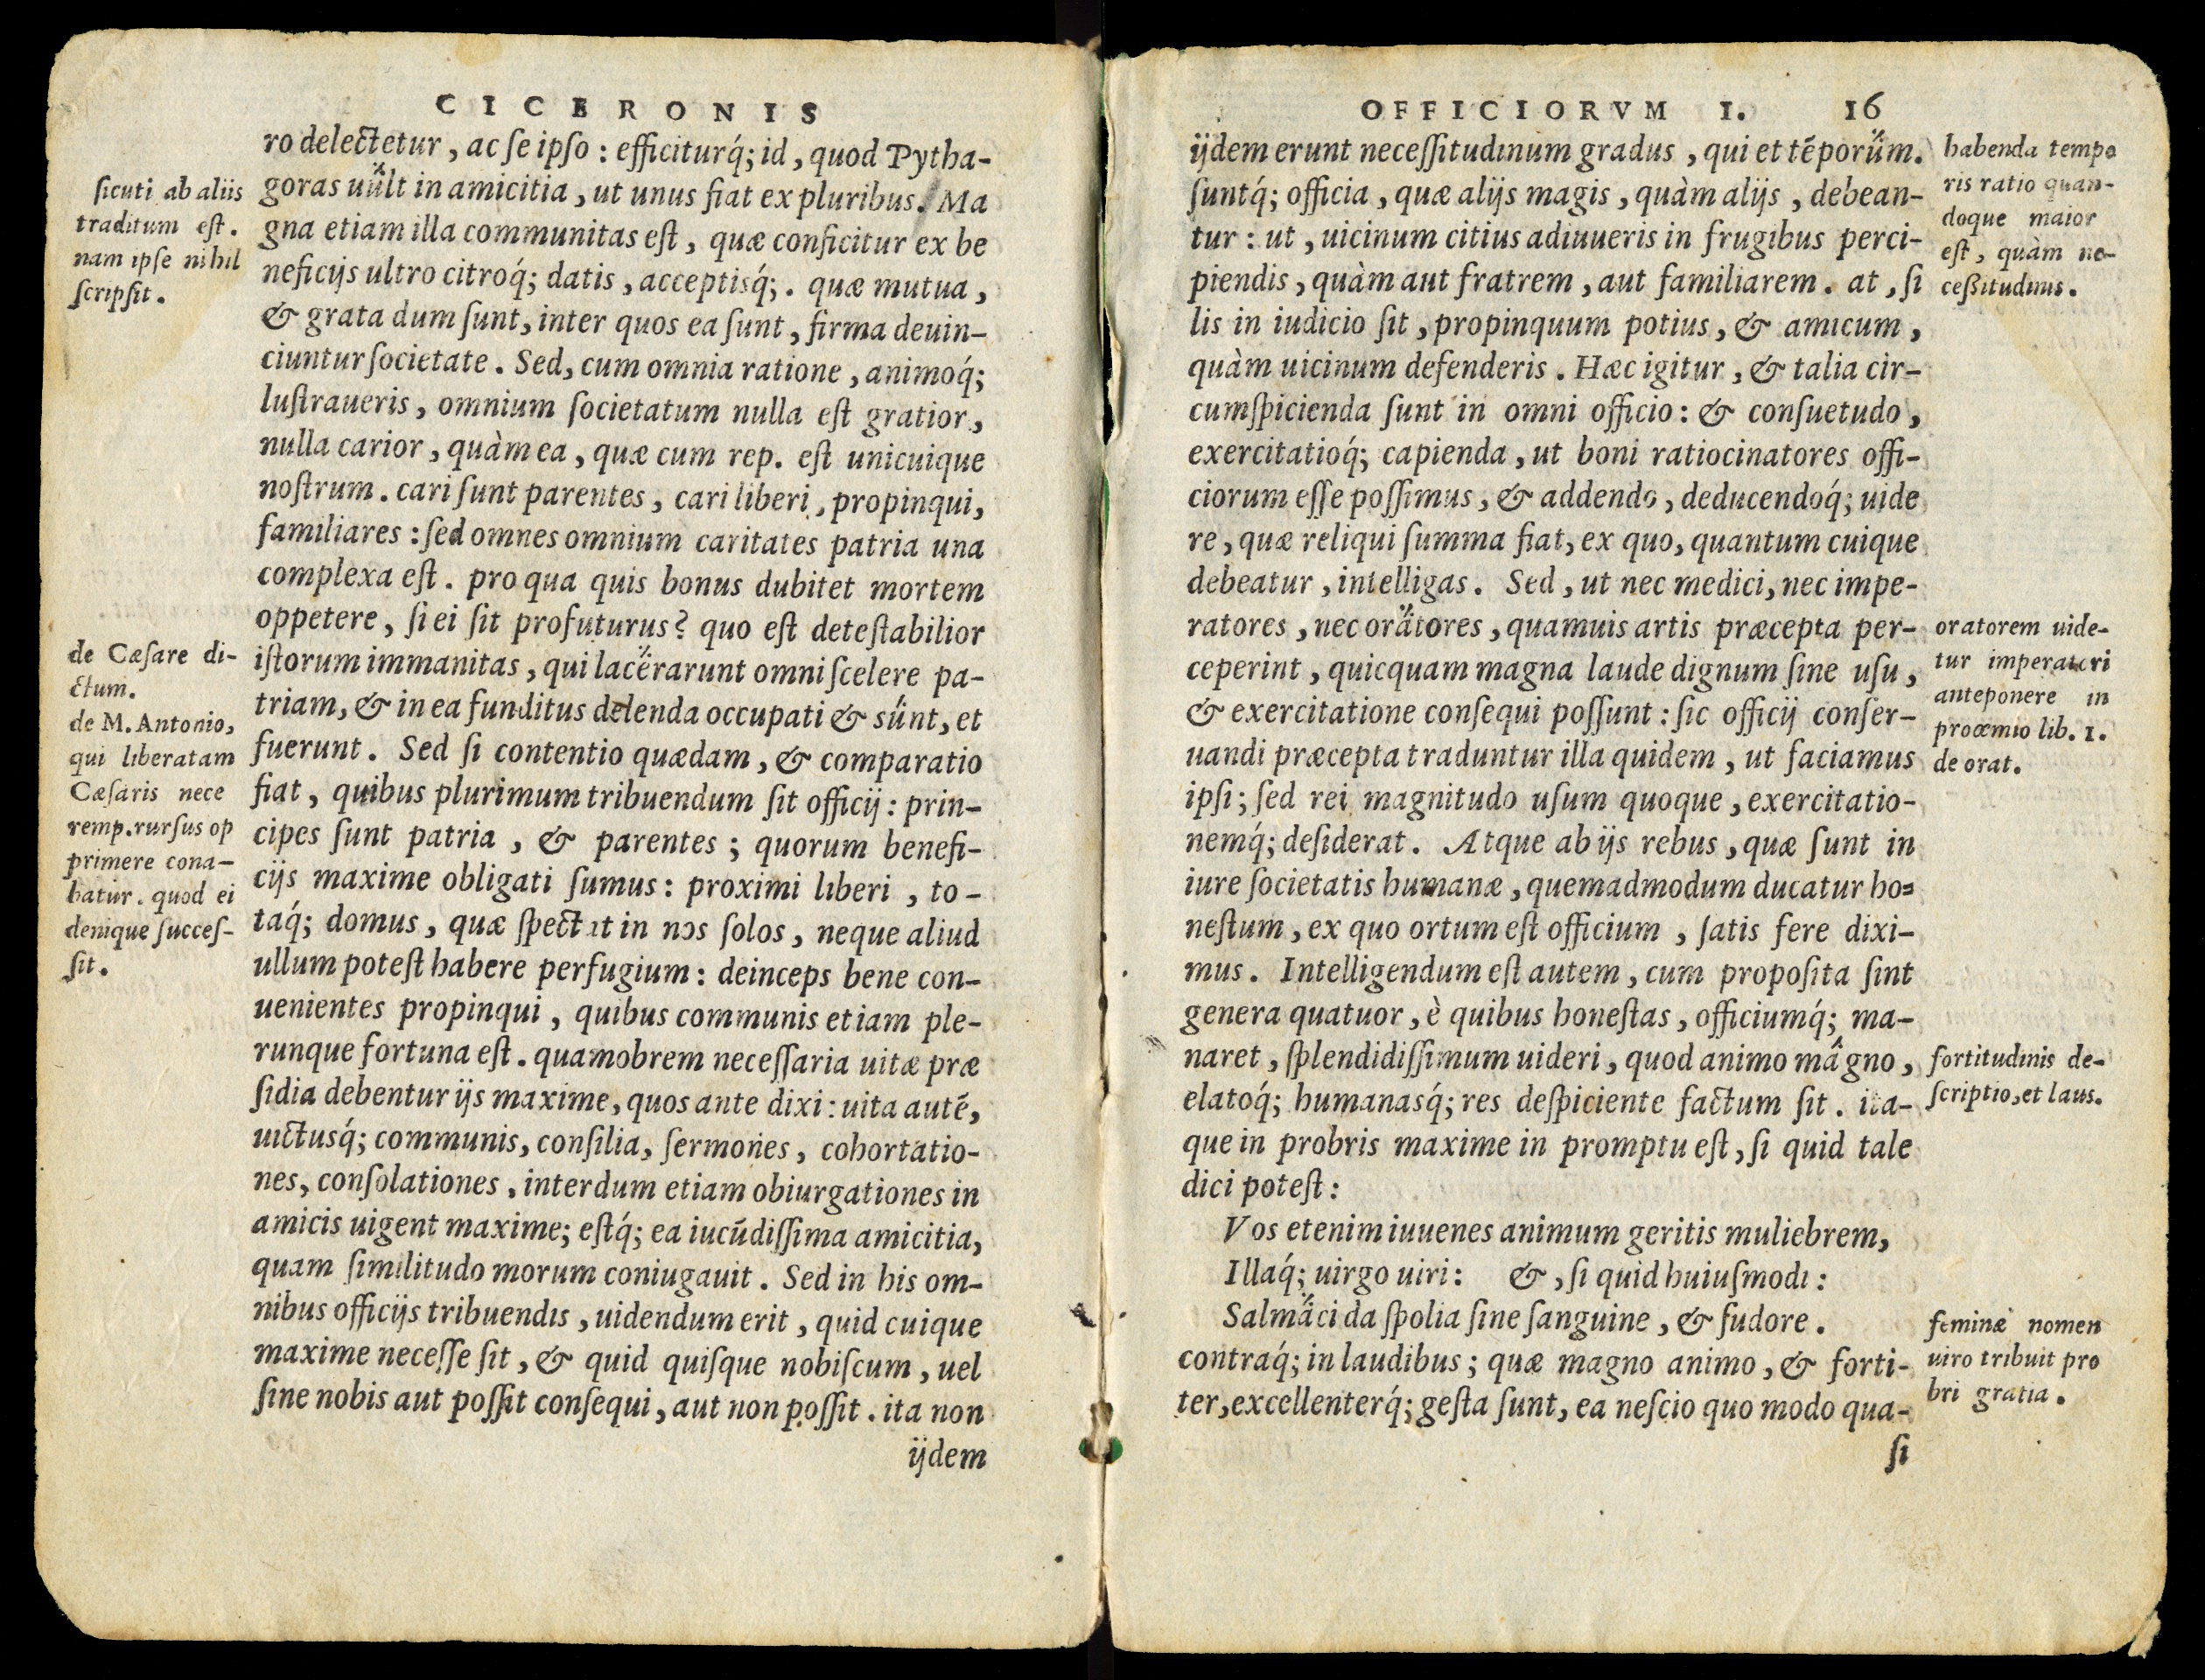 CICERONIS
ro delectetur, ac ſe ipſo: efficiturq́; id, quod Pytha-
goras uult in amicitia, ut unus fiat ex pluribus. Ma
gna etiam illa communitas eſt, quæ conficitur ex be
neficijs ultro citroq́; datis, acceptisq́;. quæ mutua,
& grata dum ſunt, inter quos ea ſunt, firma deuin-
ciuntur ſocietate. Sed, cum omnia ratione, animoq́;
luſtraueris, omnium ſocietatum nulla eſt gratior,
nulla carior, quàm ea, quæ cum rep. eſt unicuique
noſtrum. cari ſunt parentes, cari liberi, propinqui,
familiares: ſed omnes omnium caritates patria una
complexa eſt. pro qua quis bonus dubitet mortem
oppetere, ſi ei ſit profuturus? quo eſt deteſtabilior
iſtorum immanitas, qui lacerarunt omni ſcelere pa-
triam, & in ea funditus delenda occupati & sunt, et
fuerunt. Sed ſi contentio quædam, & comparatio
fiat, quibus plurimum tribuendum ſit officij: prin-
cipes ſunt patria, & parentes; quorum benefi-
cijs maxime obligati ſumus: proximi liberi, to-
taq́; domus, quæ ſpectat in nos ſolos, neque aliud
ullum poteſt habere perfugium: deinceps bene con-
uenientes propinqui, quibus communis etiam ple-
runque fortuna eſt. quamobrem neceſſaria uitæ præ
ſidia debentur ijs maxime, quos ante dixi: uita autē,
uictusq́; communis, conſilia, ſermones, cohortatio-
nes, conſolationes, interdum etiam obiurgationes in
amicis uigent maxime; eſtq́; ea iucūdiſſima amicitia,
quam ſimilitudo morum coniugauit. Sed in his om-
nibus officijs tribuendis, uidendum erit, quid cuique
maxime neceſſe ſit, & quid quiſque nobiſcum, uel
ſine nobis aut poſſit conſequi, aut non poſſit. ita non
ijdem
ſicuti ab aliis
traditum eſt.
nam ipſe nihil
ſcripſit.
de Cæſare di-
ctum.
de M. Antonio,
qui liberatam
Cæſaris nece
remp. rurſus op
primere cona-
batur. quod ei
denique ſucceſ-
ſit.
OFFICIORVM I. 16
ijdem erunt neceſſitudinum gradus, qui et tēporum.
ſuntq́; officia, quæ alijs magis, quàm alijs, debean-
tur: ut, uicinum citius adiuueris in frugibus perci-
piendis, quàm aut fratrem, aut familiarem. at, ſi
lis in iudicio ſit, propinquum potius, & amicum,
quàm uicinum defenderis. Hæc igitur, & talia cir-
cumſpicienda ſunt in omni officio: & conſuetudo,
exercitatioq́; capienda, ut boni ratiocinatores offi-
ciorum eſſe poſſimus, & addendo, deducendoq́; uide
re, quæ reliqui ſumma fiat, ex quo, quantum cuique
debeatur, intelligas. Sed, ut nec medici, nec impe-
ratores, nec oratores, quamuis artis præcepta per-
ceperint, quicquam magna laude dignum ſine uſu,
& exercitatione conſequi poſſunt: ſic officij conſer-
uandi præcepta traduntur illa quidem, ut faciamus
ipſi; ſed rei magnitudo uſum quoque, exercitatio-
nemq́; deſiderat. Atque ab ijs rebus, quæ ſunt in
iure ſocietatis humanæ, quemadmodum ducatur ho-
neſtum, ex quo ortum eſt officium, ſatis fere dixi-
mus. Intelligendum eſt autem, cum propoſita ſint
genera quatuor, è quibus honeſtas, officiumq́; ma-
naret, ſplendidiſſimum uideri, quod animo magno,
elatoq́; humanasq́; res deſpiciente factum ſit. ita-
que in probris maxime in promptu eſt, ſi quid tale
dici poteſt:
Vos etenim iuuenes animum geritis muliebrem,
Illaq́; uirgo uiri: &, ſi quid huiuſmodi:
Salmaci da ſpolia ſine ſanguine, & ſudore.
contraq́; in laudibus; quæ magno animo, & forti-
ter, excellenterq́; geſta ſunt, ea neſcio quo modo qua-
ſi
habenda tempo
ris ratio quan-
doque maior
eſt, quàm ne-
ceſsitudinis.
oratorem uide-
tur imperatori
anteponere in
proœmio lib. 1.
de orat.
fortitudinis de-
ſcriptio, et laus.
feminæ nomen
uiro tribuit pro
bri gratia.